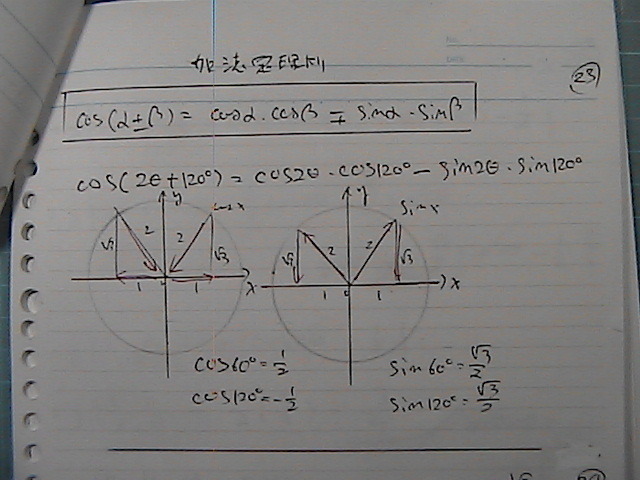 加法定理例
23
cos(α±β) = cosα・cosβ ∓ sinα・sinβ
cos(2θ+120°) = cos2θ・cos120° − sin2θ・sin120°
y
cosx
√3 2 2 √3
1 0 1 x
y
sinx
√3 2 2 √3
1 0 1 x
cos60°=1/2
cos120°=-1/2
sin60°=√3/2
sin120°=√3/2